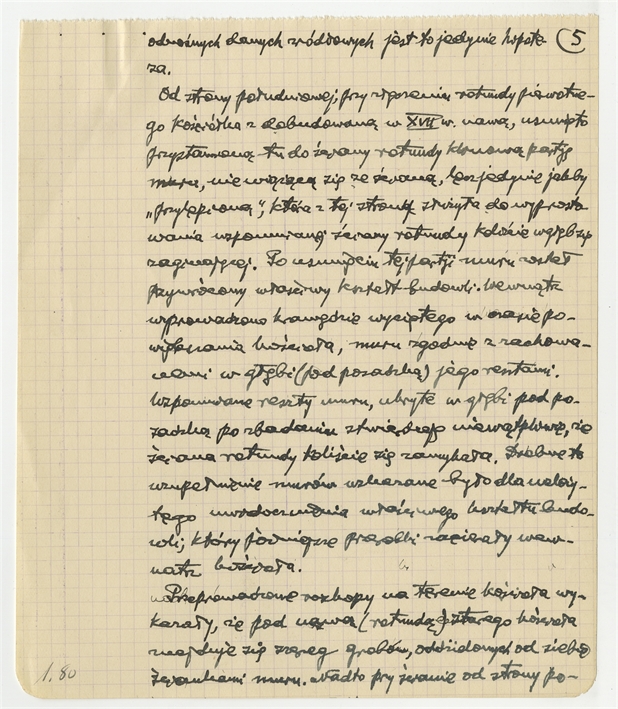 odnośnych danych źródłowych jest to jedynie hipote- 5
za.
Od strony południowej, przy złączeniu rotundy pierwotne-
go kościółka z dobudowaną w XVII w. nawą, usunięto
przystawioną tu do ściany rotundy klinową partję
muru, nie wiążącą się ze ścianą, lecz jedynie jakby
„przylepioną", która z tej strony służyła do wyprosto-
wania wspomnianej ściany rotundy koliście w głąb się
zaginającej. Po usunięciu tej partji muru został
przywrócony właściwy kształt budowli. Wewnątrz
wyprowadzono krawędzie wyciętego w czasie po-
większania kościoła, muru zgodnie z zachowa-
nemi w głębi (pod posadzką) jego resztami.
Wspomniane reszty muru, ukryte w głębi pod po-
sadzką po zbadaniu stwierdzają niewątpliwie, że
ściana rotundy koliście się zamykała. Drobne to
uzupełnienie murów wskazane było dla należy-
tego uwidocznienia właściwego kształtu budo-
wli, który późniejsze przeróbki zacierały wew-
nątrz kościoła.
Przeprowadzone rozkopy na terenie kościoła wy-
kazały, że pod nawą (rotundą) starego kościoła
znajduje się szereg grobów, oddzielonych od siebie
ściankami muru. Nadto przy ścianie od strony po-
1.80